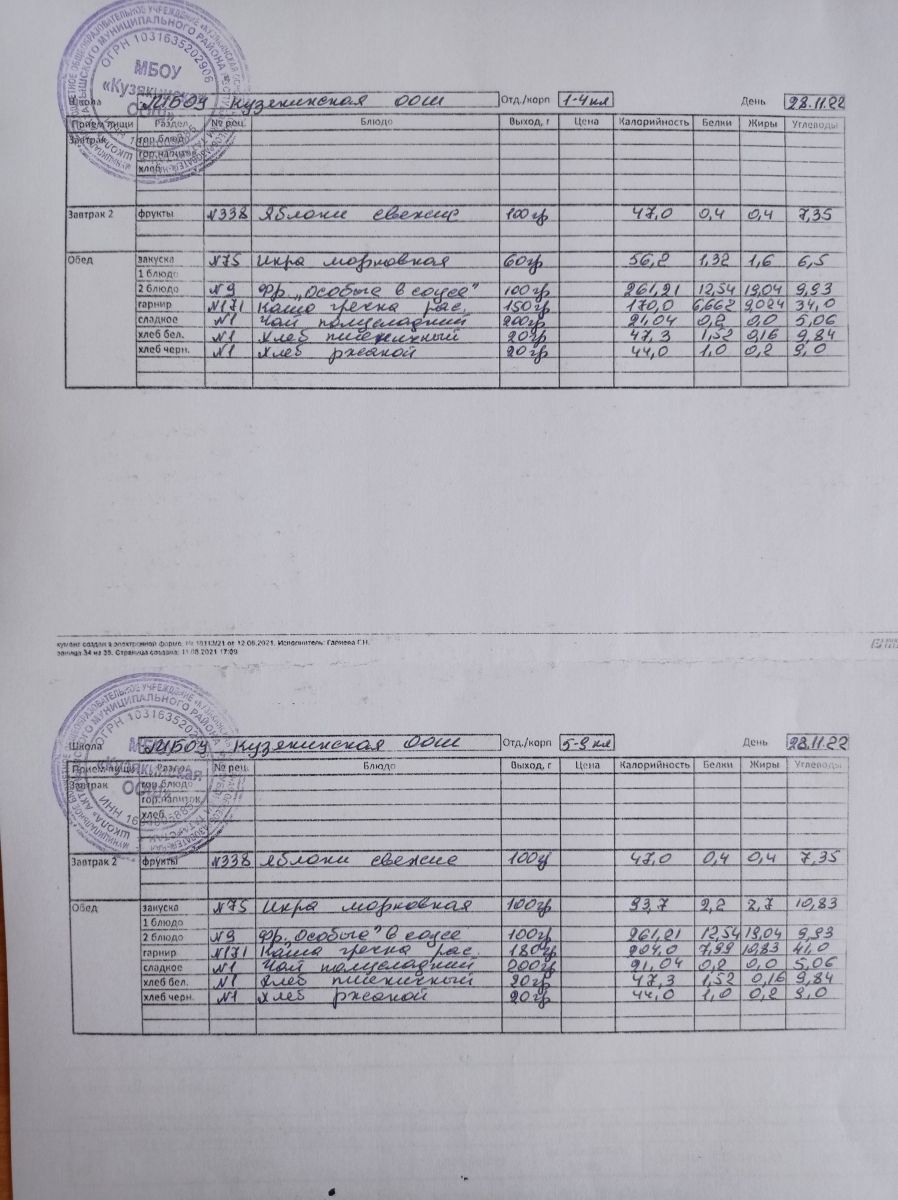 МБОУ «Кузякинская ООШ»
ОГРН 1031635202906
Школа МБОУ Кузякинская ООШ Отд./корп 1-4 кл День 28.11.22
Прием пищи Раздел № рец. Блюдо Выход, г Цена Калорийность Белки Жиры Углеводы
Завтрак гор.блюдо
гор.напиток
хлеб
Завтрак 2 фрукты №338 Яблоки свежие 100гр 47,0 0,4 0,4 7,35
Обед закуска №75 Икра морковная 60гр 56,2 1,32 1,6 6,5
1 блюдо
2 блюдо №9 Фр. „Особые в соусе" 100гр 261,21 12,54 19,04 9,93
гарнир №171 Каша гречка рас. 150гр 170,0 6,662 9,024 34,0
сладкое №1 Чай полусладкий 200гр 21,04 0,2 0,0 5,06
хлеб бел. №1 Хлеб пшеничный 20гр 47,3 1,52 0,16 9,84
хлеб черн. №1 Хлеб ржаной 20гр 44,0 1,0 0,2 9,0
кумент создан в электронной форме. № 10113/21 от 12.08.2021. Исполнитель: Галиева Г.Н.
раница 34 из 35. Страница создана: 11.08.2021 17:09
ОГРН 1031635202906
Школа МБОУ Кузякинская ООШ Отд./корп 5-9 кл День 28.11.22
Прием пищи Раздел № рец. Блюдо Выход, г Цена Калорийность Белки Жиры Углеводы
Завтрак гор.блюдо
гор.напиток
хлеб
Завтрак 2 фрукты №338 Яблоки свежие 100гр 47,0 0,4 0,4 7,35
Обед закуска №75 Икра морковная 100гр 93,7 2,2 2,7 10,83
1 блюдо
2 блюдо №9 Фр. „Особые" в соусе 100гр 261,21 12,54 19,04 9,93
гарнир №171 Каша гречка рас. 180гр 204,0 7,99 10,83 41,0
сладкое №1 Чай полусладкий 200гр 21,04 0,2 0,0 5,06
хлеб бел. №1 Хлеб пшеничный 20гр 47,3 1,52 0,16 9,84
хлеб черн. №1 Хлеб ржаной 20гр 44,0 1,0 0,2 9,0